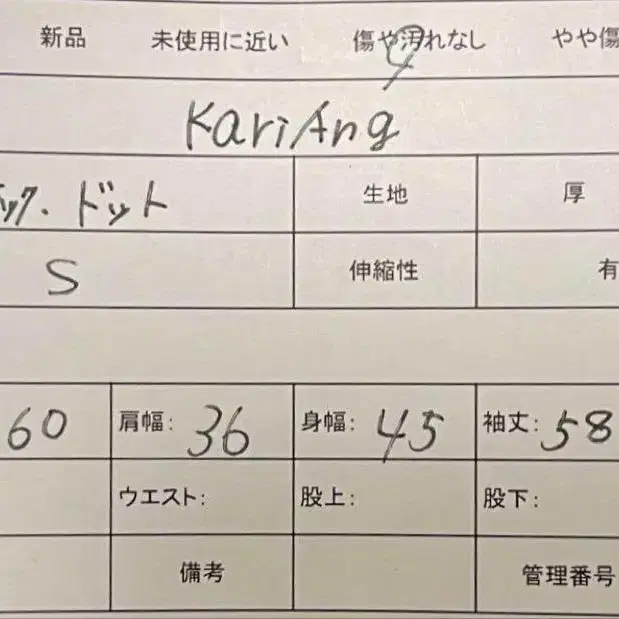 新品 未使用に近い 傷や汚れなし やや傷
KariAng
ック・ドット 生地 厚
S 伸縮性 有
60 肩幅: 36 身幅: 45 袖丈: 58
ウエスト: 股上: 股下:
備考 管理番号